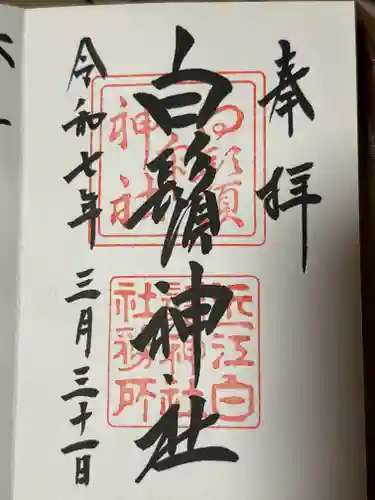 奉拝
白鬚神社
白鬚神社
近江白鬚神社社務所
令和七年 三月三十一日